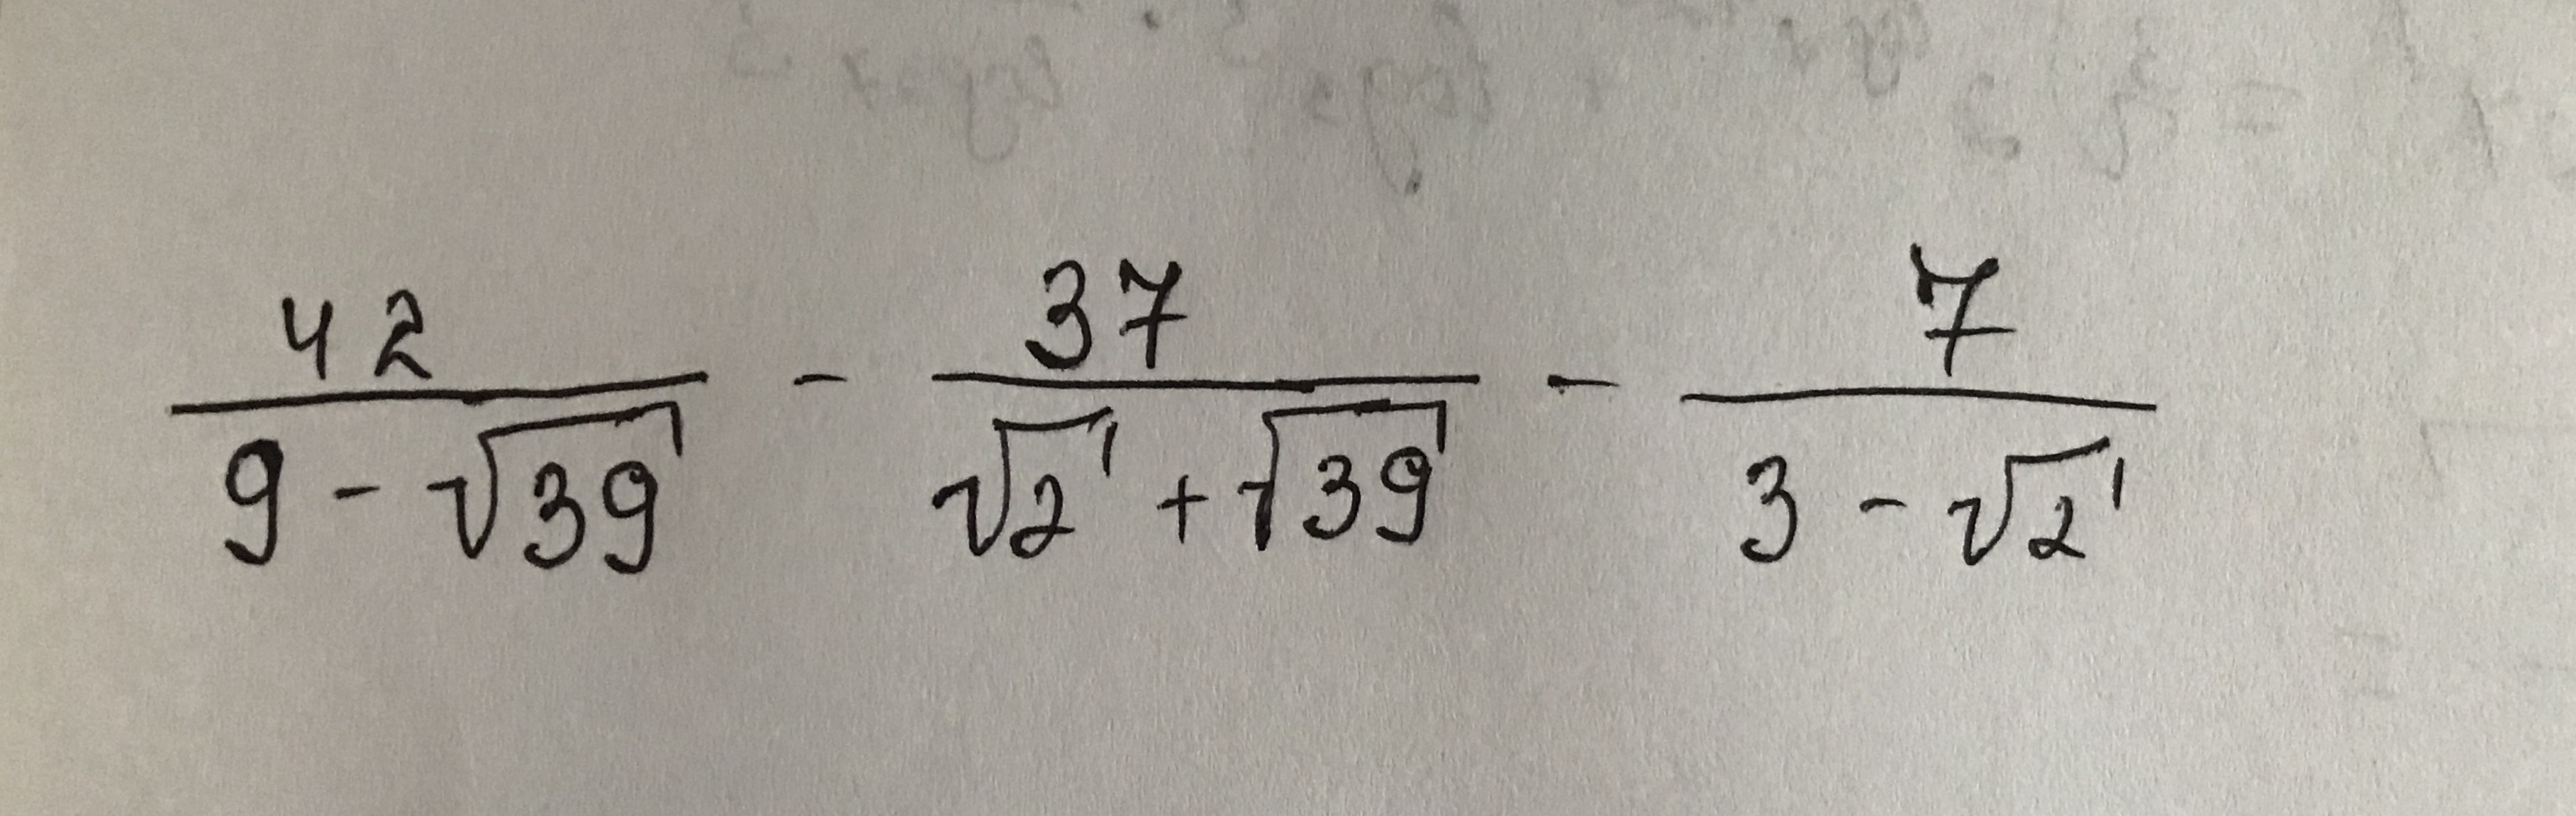 42/(9 - √39) - 37/(√2 + √39) - 7/(3 - √2)